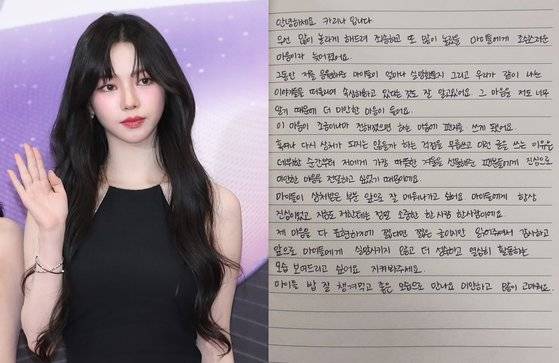 안녕하세요 카리나 입니다
우선 많이 놀라게 해드려 죄송하고 또 많이 놀랐을 마이들에게 조심스러운
마음이라 늦어졌어요.
그동안 저를 응원해준 마이들이 얼마나 실망했을지 그리고 우리가 같이 나눈
이야기들을 떠올리며 속상해하고 있다는 것도 잘 알고있어요. 그 마음을 저도 너무
알기 때문에 더 미안한 마음이 들어요.
이 마음이 조금이나마 전해졌으면 하는 마음에 편지를 쓰게 됐어요.
혹여나 다시 상처가 되지는 않을까 하는 걱정을 무릅쓰고 이런 글을 쓰는 이유는
데뷔한 순간부터 저에게 가장 따뜻한 겨울을 선물해준 팬분들에게 진심으로
미안한 마음을 전달하고 싶었기 때문이에요.
마이들이 상처받은 부분 앞으로 잘 메워나가고 싶어요 마이들에게 항상
진심이었고 지금도 제한테는 정말 소중한 한 사람 한사람이에요.
제 마음을 다 표현하기에 짧다면 짧은 글이지만 읽어주셔서 감사하고
앞으로 마이들에게 실망시키지 않고 더 성숙하고 열심히 활동하는
모습 보여드리고 싶어요 지켜봐주세요.
마이들 밥 잘 챙겨먹고 좋은 모습으로 만나요 미안하고 많이 고마워요.